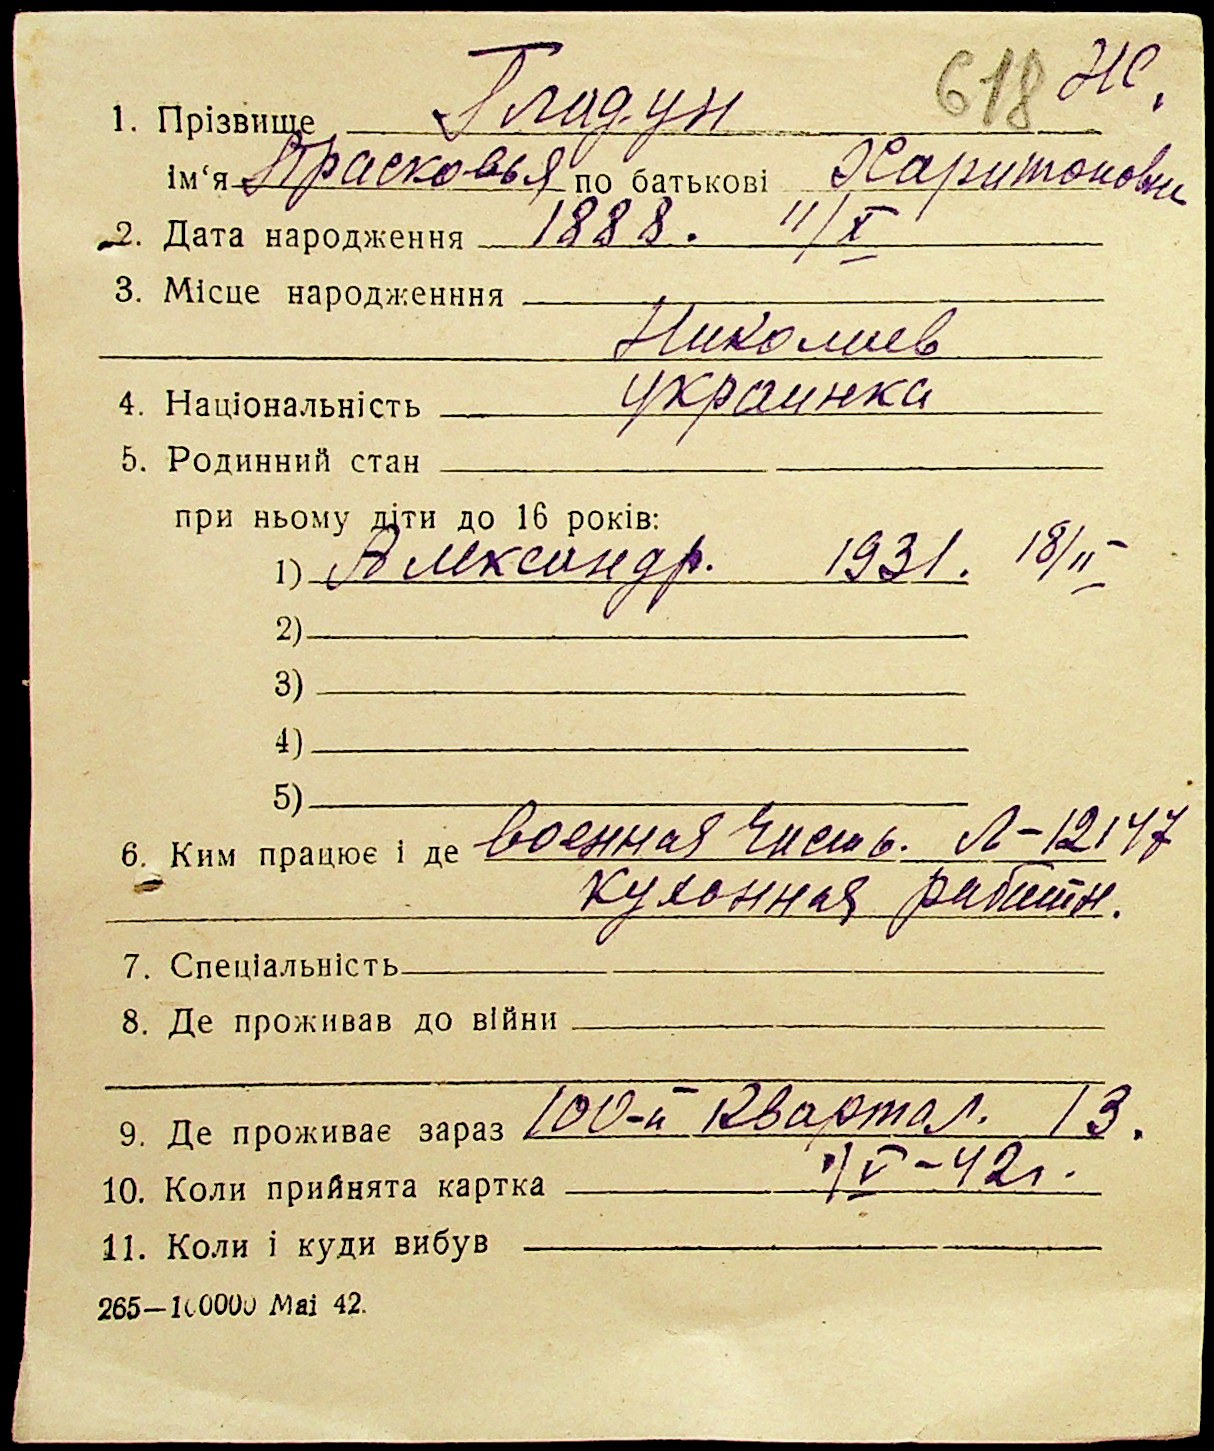 618 Ж.
1. Прізвище Гладун
ім‘я Прасковья по батькові Харитоновн
2. Дата народження 1888. 11/X
3. Місце народженння
Николаев
4. Національність украинка
5. Родинний стан
при ньому діти до 16 років:
1) Александр. 1931. 18/II
2)
3)
4)
5)
6. Ким працює і де военная часть. Л-12147
кухонная работн.
7. Спеціальність
8. Де проживав до війни
9. Де проживає зараз 100-й квартал. 13.
10. Коли прийнята картка /V-42г.
11. Коли і куди вибув
265—100000 Маі 42.